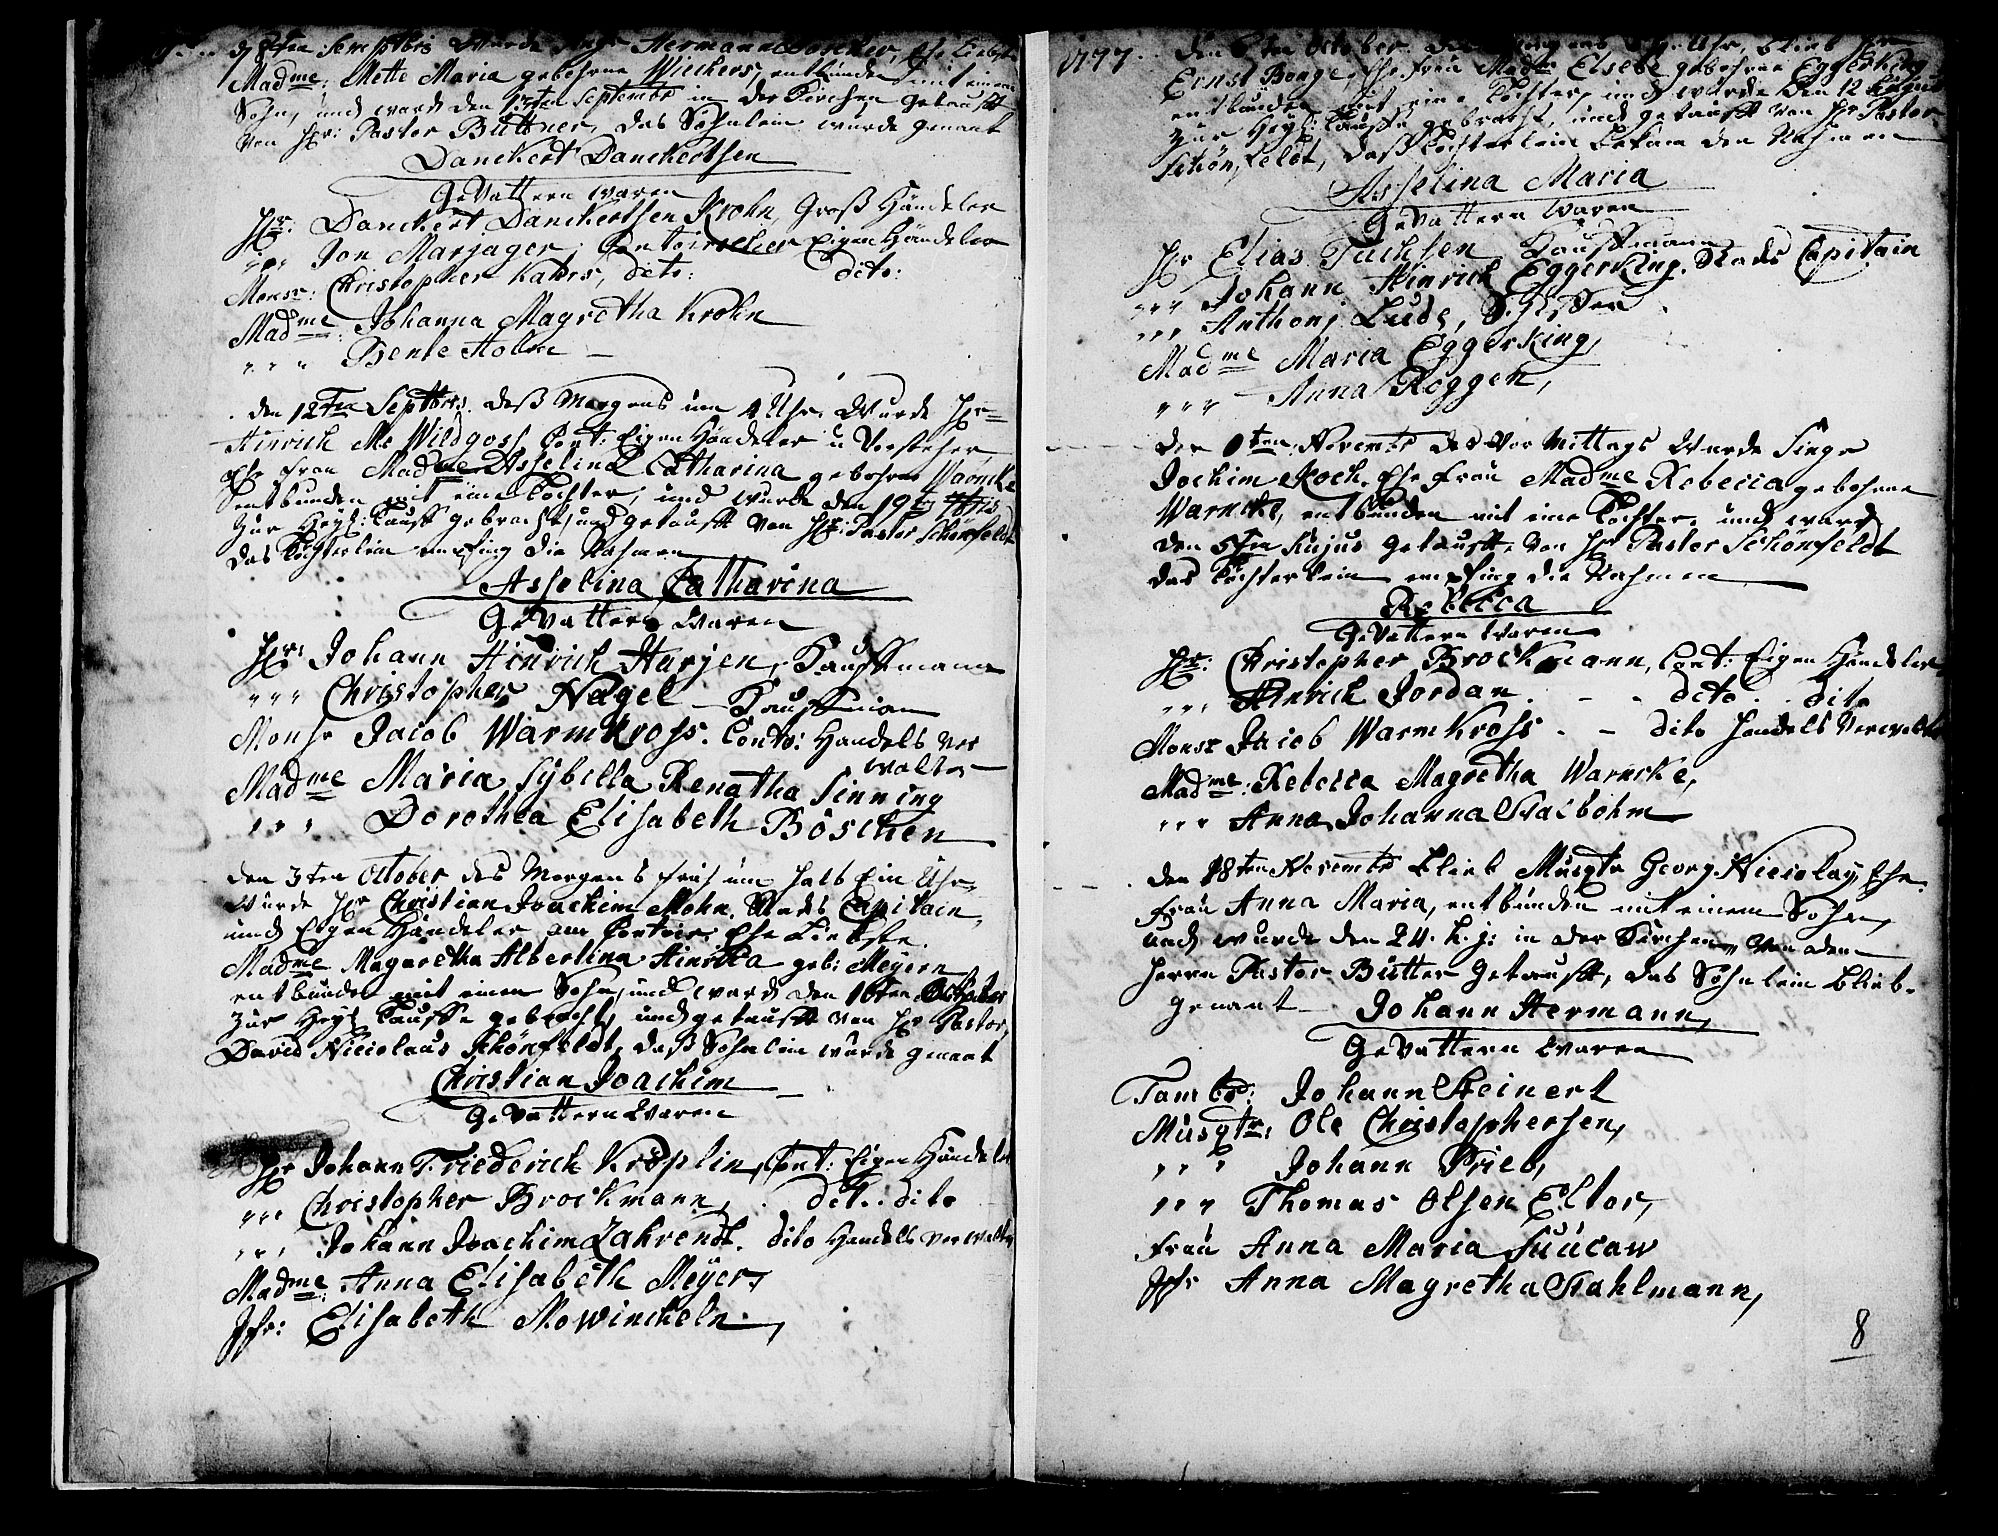 Septbris wurde Hermann
Madme: Mette Maria gebohrne Wiehers, entbunden mit einem
Sohn, und ward den Septembr in der Kirchen getaufft
von Hr: Pastor Büttner, das Söhnlein wurde genant
Danckert Danckertsen
Gevattern waren
Hr: Danckert Danckertsen Krohn, Groß Händeler
" " Jon Marjager, Contoirscher Eigen Händeler
Monsr: Christopher Kahrs, dito: dito:
Madme: Johanna Magretha Krohn
" " " Bente Holm
den 12ten Septbris. deß Morgens um 4 Uhr. Wurde Hr
Hinrich Me Wildgoss Cont: Eigen Händeler u Vorsteher
Ehe Frau Madme Asselina Catharina gebohrne Warncke
entbunden mit eine Tochter, und wurde den 19 7bris
zur Heyl: Tauff gebracht, und getaufft von Hr: Pastor Schönfeldt
das Töchterlein empfing die Nahmen
Asselina Catharina
Gevattern waren
Hr: Johann Hinrich Harjen, Kauffmann
" " " Christopher Nagel Kauffman
Monsr Jacob Warmkross. Contr: Handels Ver
walter
Madme Maria Sybella Renatha Sinning
" " " Dorothea Elisabeth Böschen
den 3ten October des Morgens früh um halb Ein Uhr
Wurde Hr Christian Joachim Mohn. Stads Capitain,
und Eigen Händeler am Contoir, Ehe Liebste.
Madme Magaretha Albertina Hinrica geb: Meyern
entbunden mit einen Sohn, und ward den 10ten October
zur Heyl Tauffe gebracht, und getaufft von Hr Pastor,
David Nicolaus Schönfeldt, daß Söhnlein wurde genant
Christian Joachim
Gevattern Waren
Hr Johann Friederich Kröplin, Cont: Eigen Händeler
" " " Christopher Brockmann, dito. dito
" " " Johann Joachim Zahrendt. dito Handels verwalter
Madme: Anna Elisabeth Meyer,
Jfr: Elisabeth Mowinckeln,
1777. den 6ten October. Uhr, blieb Hr
Ernst Bonge, Ehe Frau Madme Elsebe gebohrne Eggerking
entbunden mit eine Tochter, und wurde den 12
zur Heyl: Tauffe gebracht, und getaufft von Hr Pastor
Schönfeldt, daß Töchterlein bekam den Nahmen
Asselina Maria
Gevattern waren
Hr Elias Tachsen Kauffmann
" " " Johann Hinrich Eggerking. Stads Capitain
" " " Anthonj Lude, Schiffer
Madme Maria Eggerking,
" " " Anna Roggen,
den ten Novembr des Vor Mittags Wurde Singr
Jochim Koch. Ehe Frau Madme Rebecca gebohrne
Warncke, entbunden mit eine Tochter, und ward
den 5ten hujus getaufft, von Hr Pastor Schönfeldt
das Töchterlein empfing die Nahmen
Rebecca
Gevattern Waren
Hr: Christopher Brockmann, Cont: Eigen Händeler
" " " Hinrich Jordan. - - dito. dito
Monsr Jacob Warmkross. - dito Handels Verwalter
Madme: Rebecca Magretha Warncke,
" " " Anna Johanna Stalbohm
den 18ten Novembr blieb Musqtr Georg Nicolay, Ehe.
Frau Anna Maria, entbunden mit einem Sohn,
und wurde den 24. h. j: in der Kirchen, von dem
Herrn Pastor Bütter getaufft, das Söhnlein blieb.
genant Johann Hermann,
Gevattern waren
Tambr: Johann Steinert
Musqtr: Ole Christophersen,
" " " Johann Prieb,
" " " Thomas Olsen Eltor,
Frau Anna Maria Suucaw
Jfr Anna Magretha Stahlmann,
8